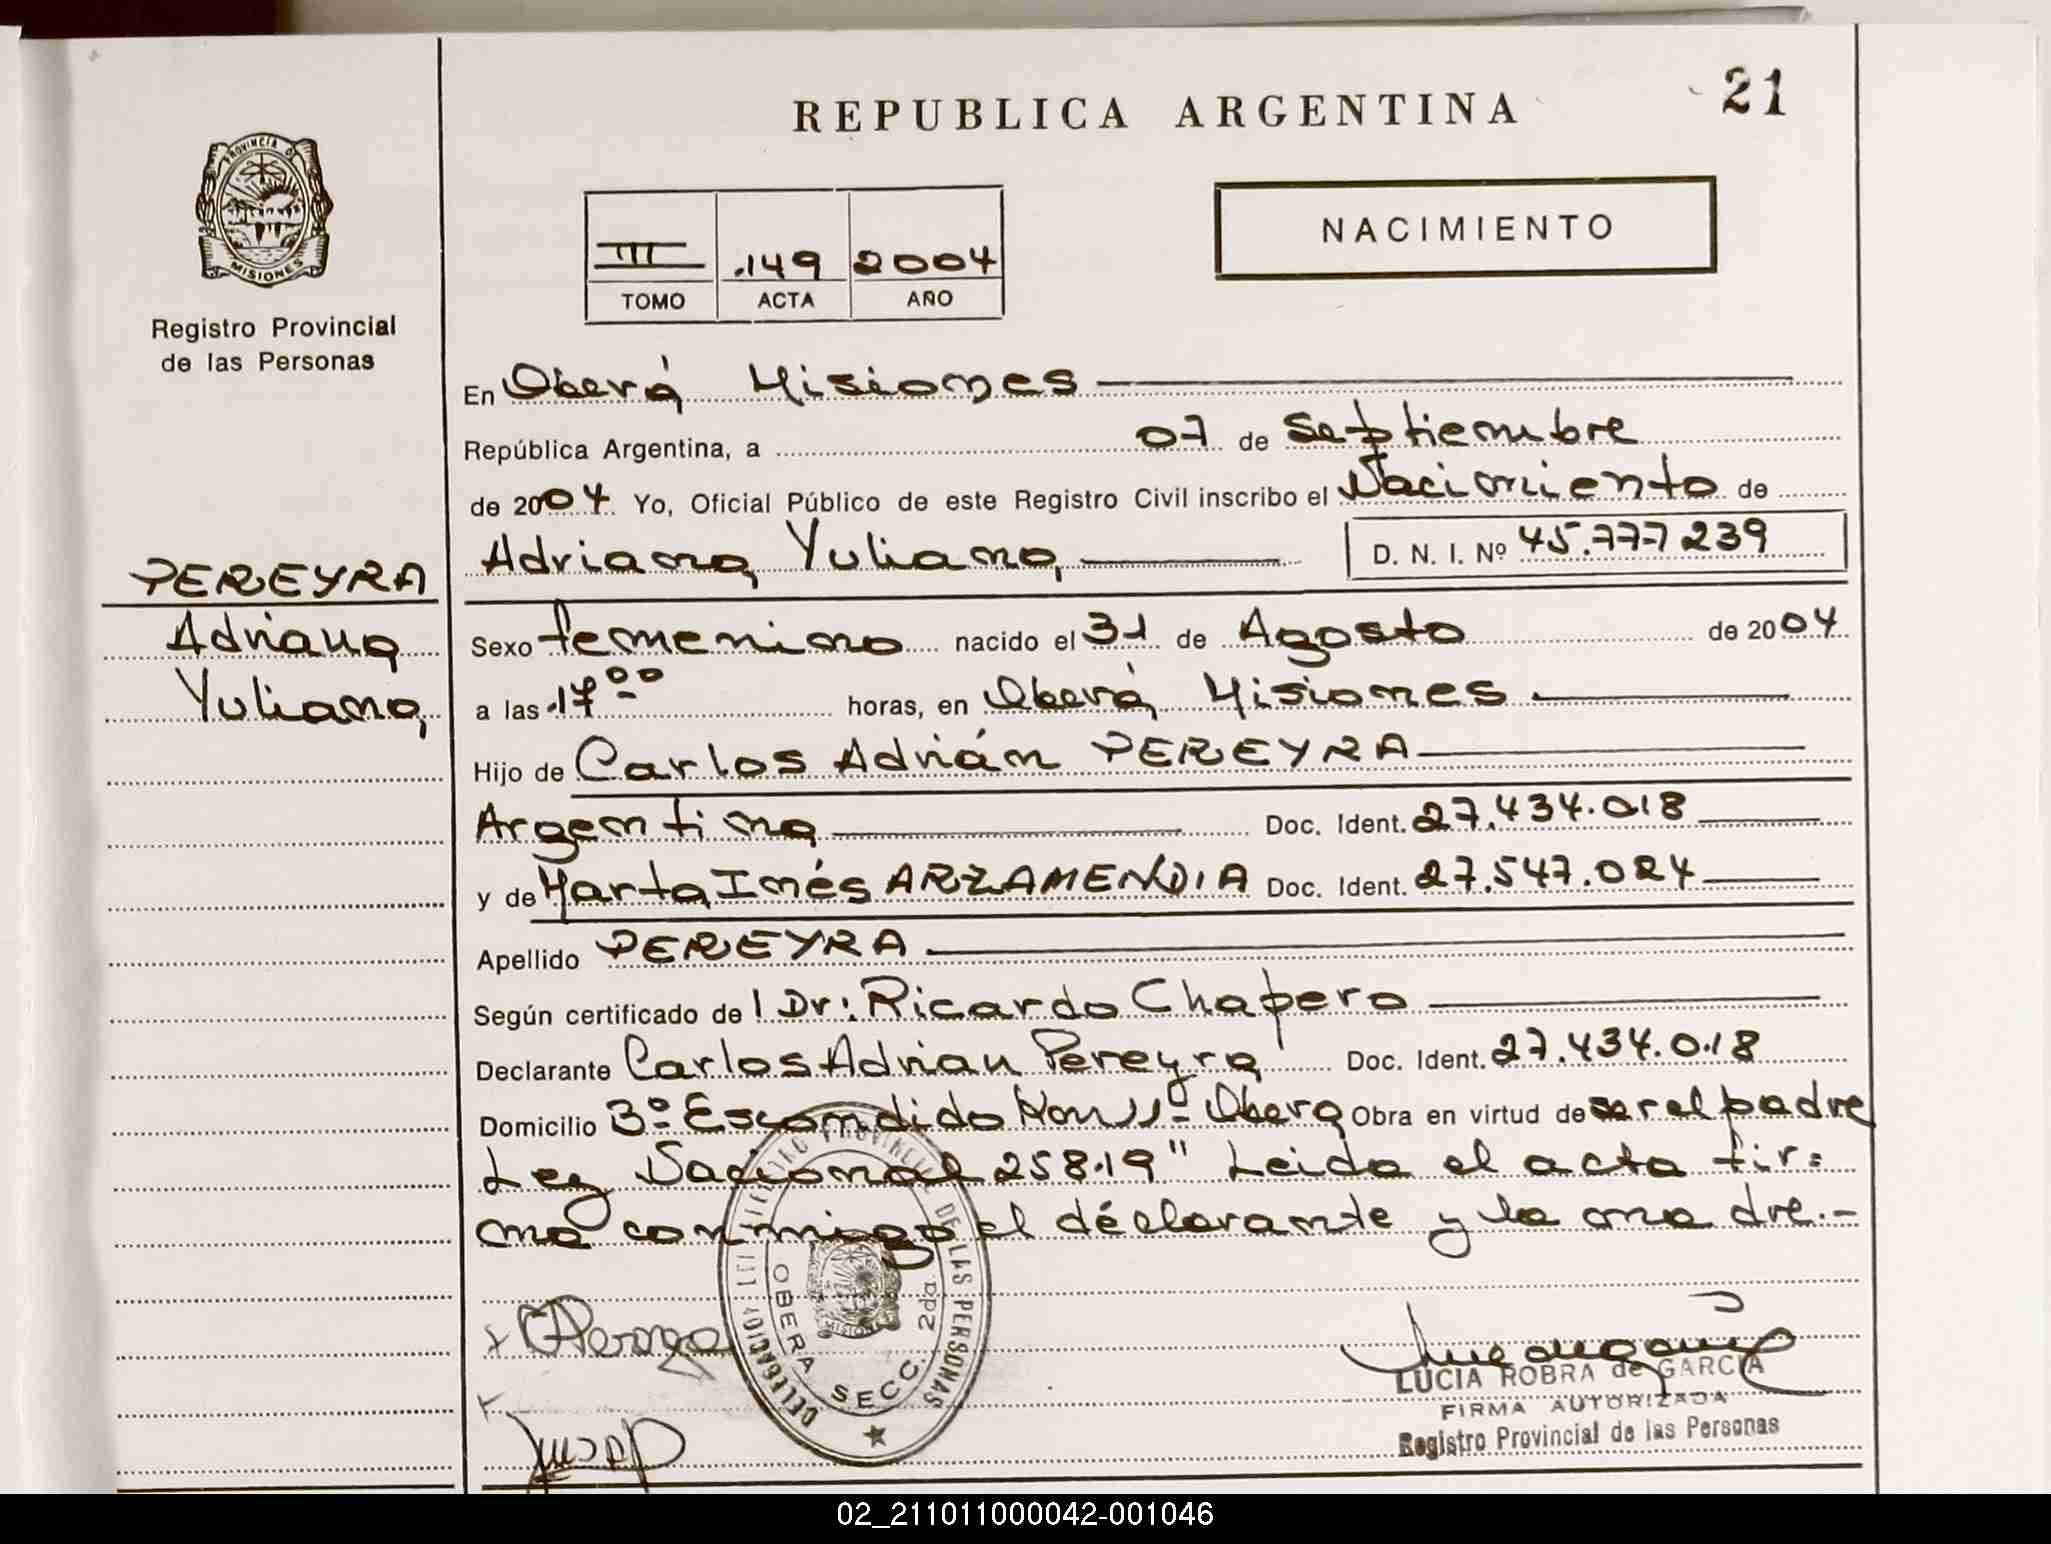 21
REPUBLICA ARGENTINA
PROVINCIA DE
MISIONES
Registro Provincial
de las Personas
NACIMIENTO
III .149 2004
TOMO ACTA AÑO
En Oberá Misiones
República Argentina, a 07 de Septiembre
de 2004 Yo, Oficial Público de este Registro Civil inscribo el Nacimiento de
Adriana Yuliana D. N. I. Nº 45.777239
PEREYRA
Adriana
Yuliana
Sexo femenino nacido el 31 de Agosto de 2004
a las 17 00 horas, en Oberá Misiones
Hijo de Carlos Adrián PEREYRA
Argentina Doc. Ident. 27.434.018
y de Marta Inés ARZAMENDIA Doc. Ident. 27.547.024
Apellido PEREYRA
Según certificado de l Dr: Ricardo Chapero
Declarante Carlos Adrian Pereyra Doc. Ident. 27.434.018
Domicilio 3º Escondido Oberá Obra en virtud de ser el padre
Ley Nacional 25819" Leida el acta fir=
ma conmigo el déclarante y la madre.-
DELEGACION REGISTRO PROVINCIAL DE LAS PERSONAS
OBERA SECC. 2da
MISIONES
LUCIA ROBRA de GARCIA
FIRMA AUTORIZADA
Registro Provincial de las Personas
02_211011000042-001046